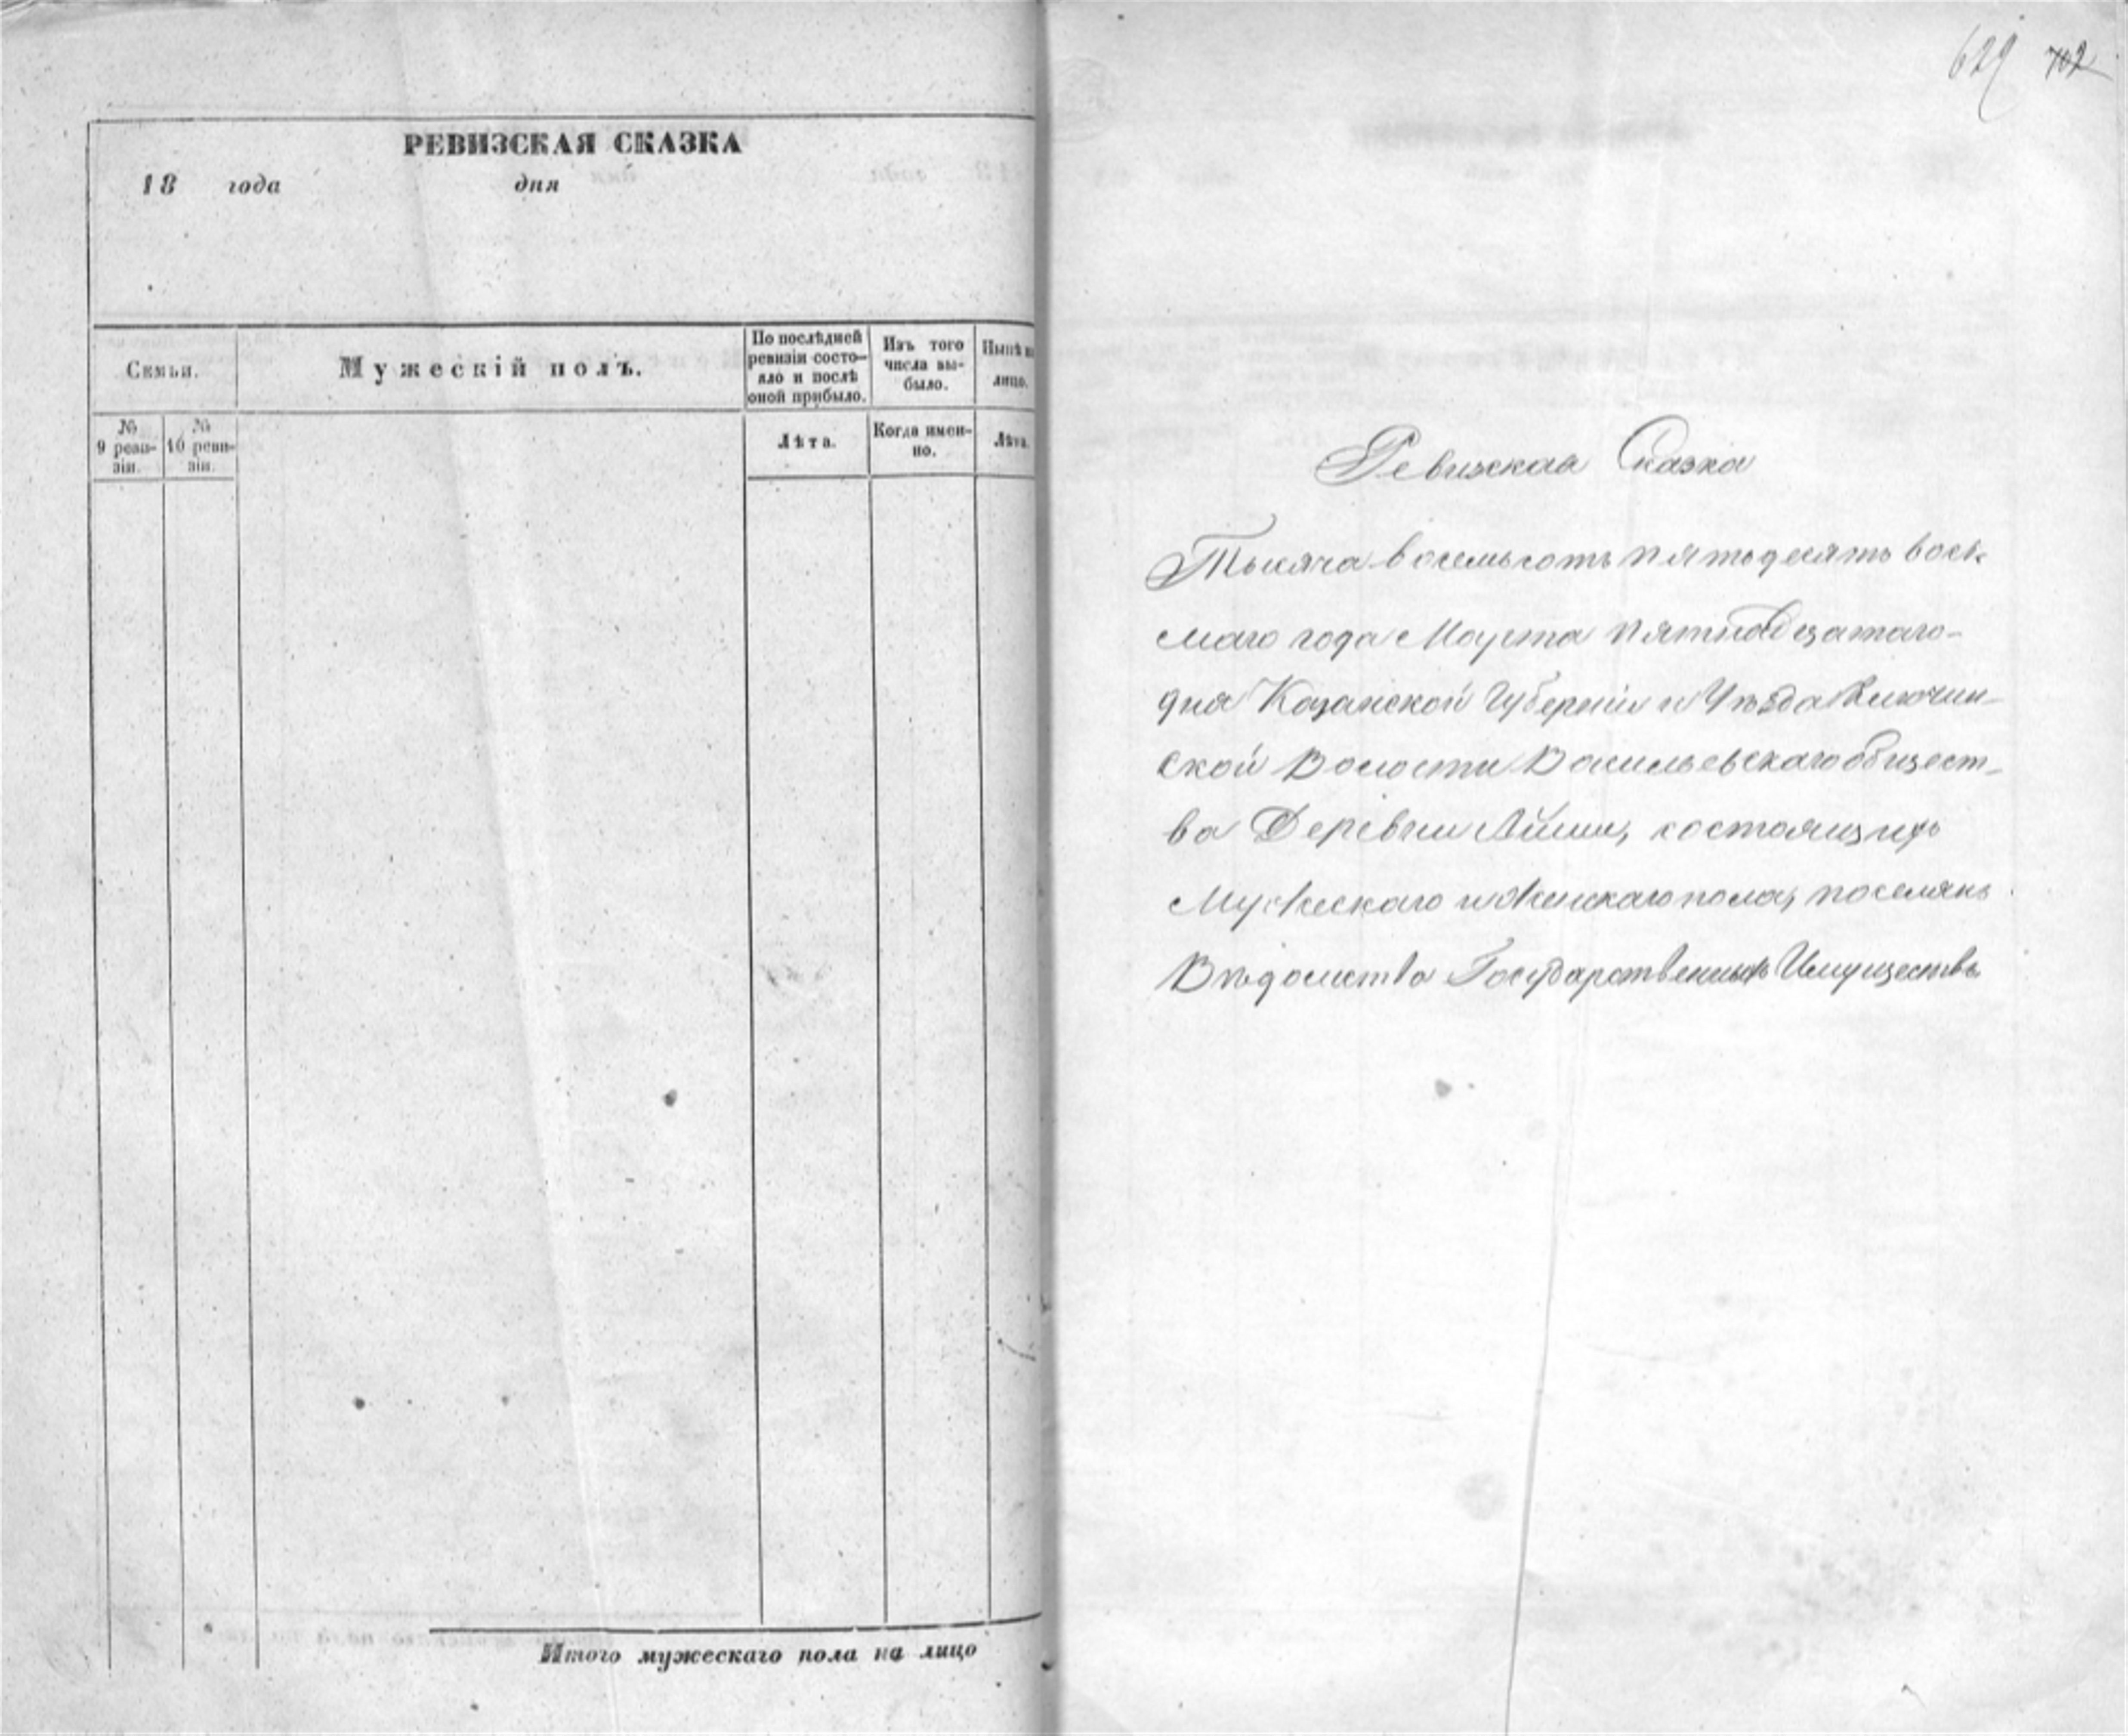 РЕВИЗСКАЯ СКАЗКА
18 года дня
Семьи.
Мужескій полъ.
По послѣдней
ревизіи состо-
яло и послѣ
оной прибыло.
Изъ того
числа вы-
было.
Нынѣ на
лицо.
№
9 реви-
зіи.
№
10 реви-
зіи.
Лѣта.
Когда имен-
но.
Лѣта.
Итого мужескаго пола на лицо
629 702
Ревизская Сказка
Тысяча восемьсотъ пятьдесятъ вось-
маго года Марта пятнадцатаго
дня Казанской Губерніи и Уѣзда Ключин-
ской Волости Васильевскаго общест-
ва Деревни Айши, состоящихъ
Мужескаго и Женскаго пола, поселянъ
Вѣдомства Государственныхъ Имуществъ